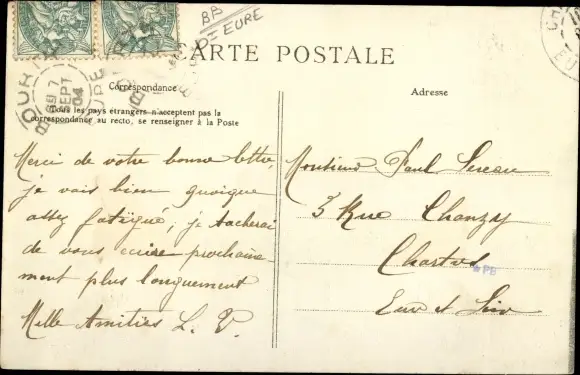 BB
D'EURE
CARTE POSTALE
Correspondance
Adresse
Tous les pays étrangers n'acceptent pas la
correspondance au recto, se renseigner à la Poste
7
SEPT
04
Merci de votre bonne lettre,
je vais bien quoique
assez fatigué, je tacherai
de vous ecrire prochaine
ment plus longuement
Mille Amitiés L. P.
Monsieur Paul
3 Rue Chanzy
Chartres
Eure et Loir
PB